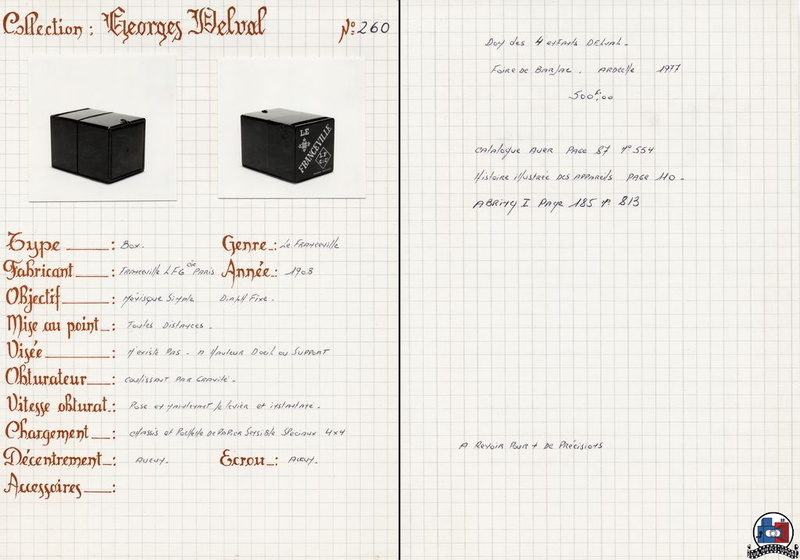 Collection : Georges Delval
N°: 260
LE
FRANCEVILLE
Type : Box.
Genre : Le Franceville
Fabricant : Franceville L.F.G cie Paris
Année : 1908
Objectif : Ménisque Simple Diaph Fixe.
Mise au point : Toutes Distances.
Visée : N'existe Pas. A Hauteur D'oeil ou Support
Obturateur : Coulissant Par Gravité.
Vitesse obturat. : Pose en maintenant le levier et instantané.
Chargement : chassis et Pochette de Papier Sensible Spéciaux 4x4
Décentrement : Aucun.
Ecrou : Aucun.
Accessoires :
Don des 4 enfants Delval.
Foire de Barjac. Ardeche 1977
500f,00
Catalogue Auer Page 87 N° 554
Histoire illustrée des appareils page 110.
Abring I Page 185 N° 813
A Revoir Pour + de Précisions